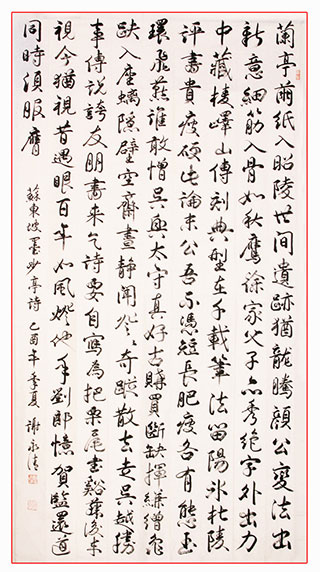 蘭亭繭紙入昭陵世间遺跡猶龍騰顏公變法出
新意細筋入骨如秋鷹徐家父子亦秀絕字外出力
中藏棱嶧山傳刻典型在千載筆法留陽冰杜陵
評書貴瘦硬此論未公吾不憑短長肥瘦各有態玉
環飛燕誰敢憎吳興太守真好古購買斷缺揮縑繒龜
趺入座螭隱壁空齋晝靜聞登登奇蹤散去走吳越勝
事傳說誇友朋書來乞詩要自寫為把栗尾書谿藤後來
視今猶視昔過眼百年如風燈他年劉郎憶賀監還道
同時須服膺
蘇東坡墨妙亭詩 乙酉年季夏 謝永清